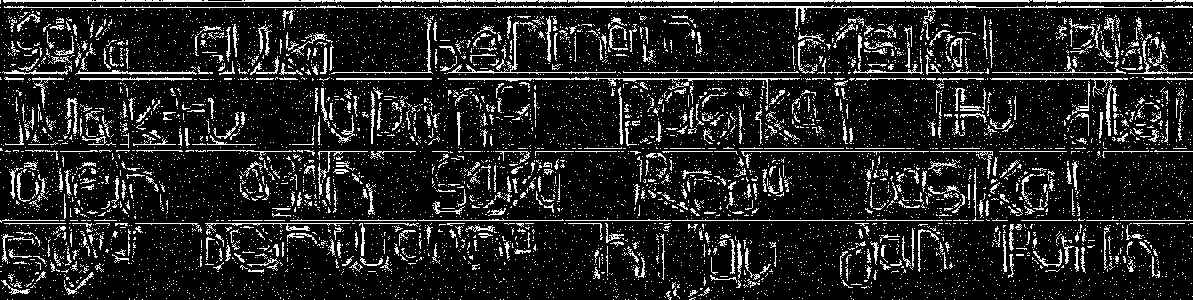 Saya suka bermain basikal Pada
Waktu lapang Basikal itu dibeli
oleh ayah saya Roda basikal
saya berwarna hijau dan Putih